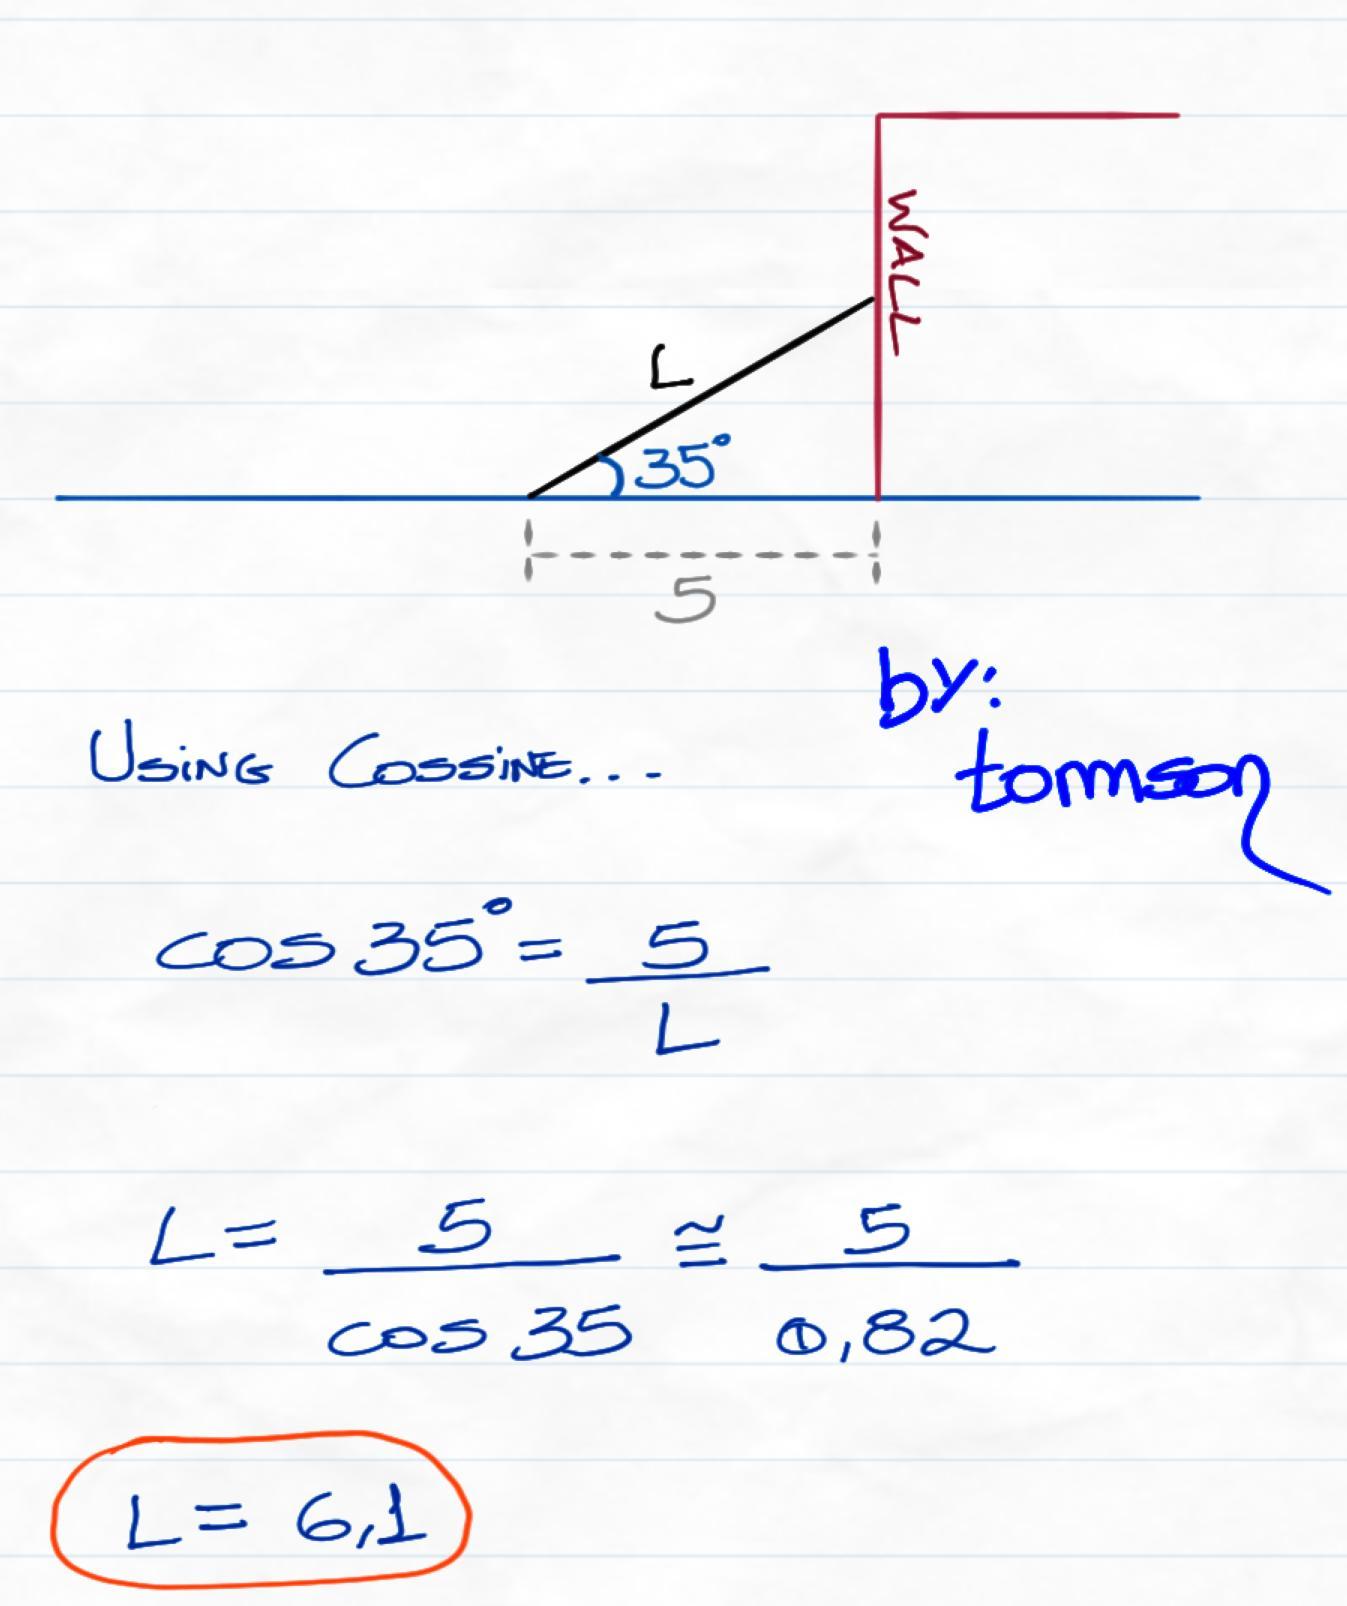 WALL
L
35°
5
by:
tomson
USING COSSINE...
cos 35° = 5/L
L = 5/cos 35 ≅ 5/0,82
L = 6,1